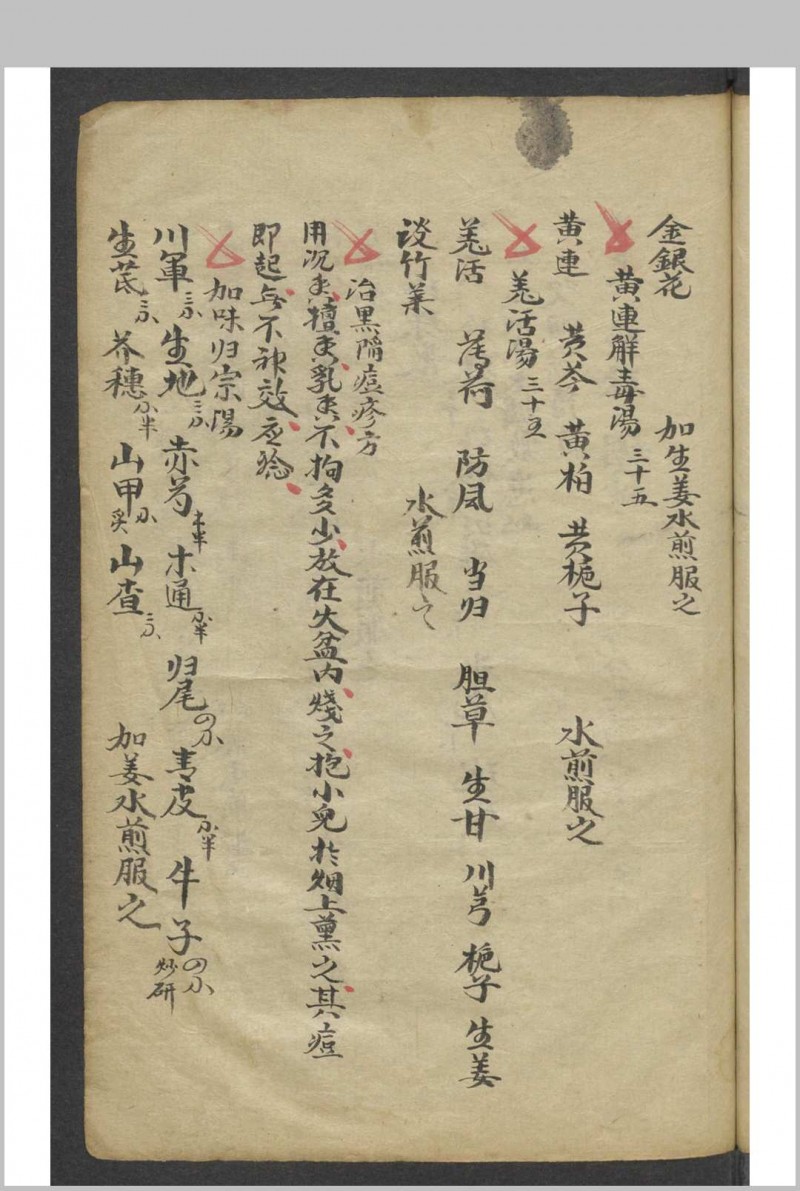 金銀花 加生姜水煎服之
黄連解毒湯 三十五
黄連 黄芩 黄柏 黄梔子 水煎服之
羌活湯 三十五
羌活 薄荷 防风 当归 胆草 生甘 川芎 梔子 生姜
淡竹菓 水煎服之
治黒陷痘疹方
用沉香檀香乳香不拘多少放在火盆内燒之抱小兒於烟上薰之其痘
即起無不神效应驗
加味归宗湯
川軍三分 生地三分 赤芍 木通分半 归尾四分 青皮分半 牛子四分炒研
生芪三分 芥穗分半 山甲分炙 山查三分 加姜水煎服之